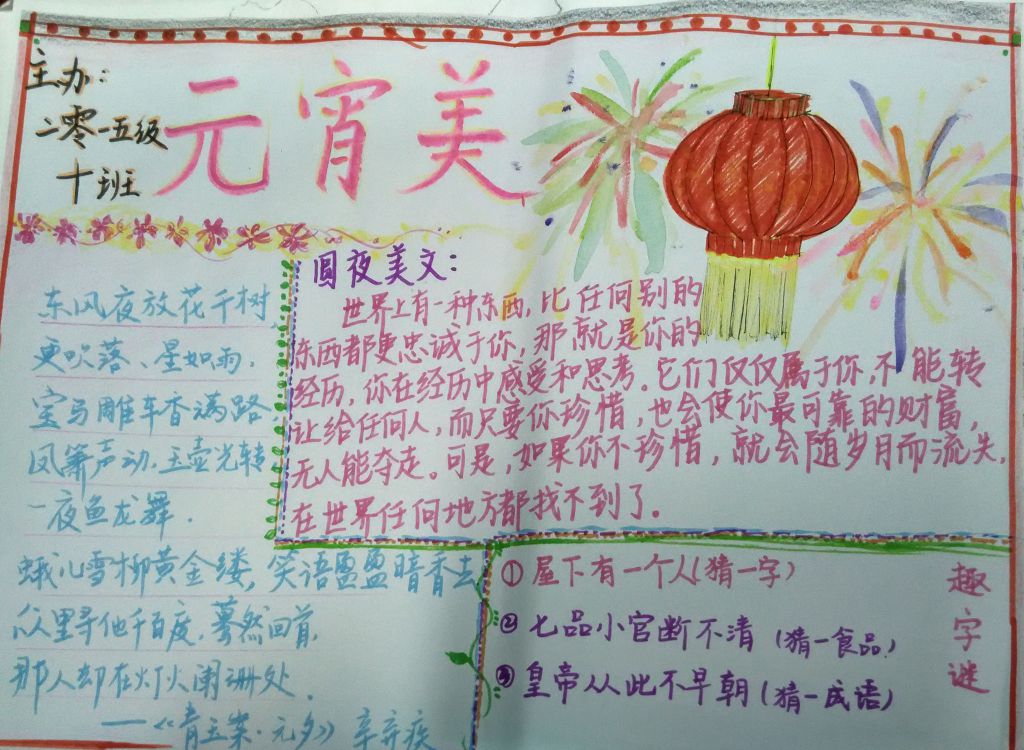 主办：
二零一五级
十班
元宵美
东风夜放花千树
更吹落、星如雨.
宝马雕车香满路
凤箫声动.玉壶光转
一夜鱼龙舞.
蛾儿雪柳黄金缕,笑语盈盈暗香去
众里寻他千百度.蓦然回首,
那人却在灯火阑珊处.
——《青玉案·元夕》辛弃疾
圆夜美文:
世界上有一种东西,比任何别的
东西都更忠诚于你,那就是你的
经历,你在经历中感受和思考。它们仅仅属于你,不能转
让给任何人,而只要你珍惜,也会使你最可靠的财富,
无人能夺走。可是,如果你不珍惜,就会随岁月而流失,
在世界任何地方都找不到了。
趣字谜
①屋下有一个人(猜一字)
②七品小官断不清(猜一食品)
③皇帝从此不早朝(猜一成语)